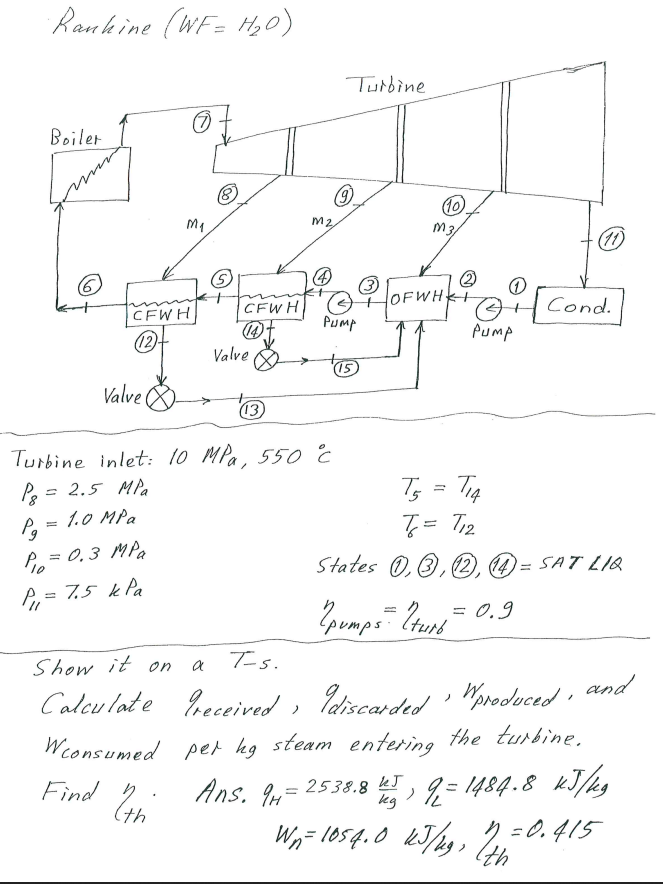 Rankine (WF= H₂O)
Turbine
Boiler
⑦
⑧
m₁
⑨
m₂
⑩
m₃
⑪
⑥
CFWH
⑤
CFWH
④
Pump
③
OFWH
②
Pump
①
Cond.
⑫
⑭
Valve
⑮
Valve
⑬
Turbine inlet: 10 MPa, 550 °C
P₈ = 2.5 MPa
P₉ = 1.0 MPa
P₁₀ = 0.3 MPa
P₁₁ = 7.5 kPa
T₅ = T₁₄
T₆ = T₁₂
States ①,③,⑫,⑭ = SAT LIQ
η pumps = η turb = 0.9
Show it on a T-s.
Calculate q received, q discarded, W produced, and
W consumed per kg steam entering the turbine.
Find η th. Ans. q_H = 2538.8 kJ/kg, q_L = 1484.8 kJ/kg
W_n = 1054.0 kJ/kg, η th = 0.415